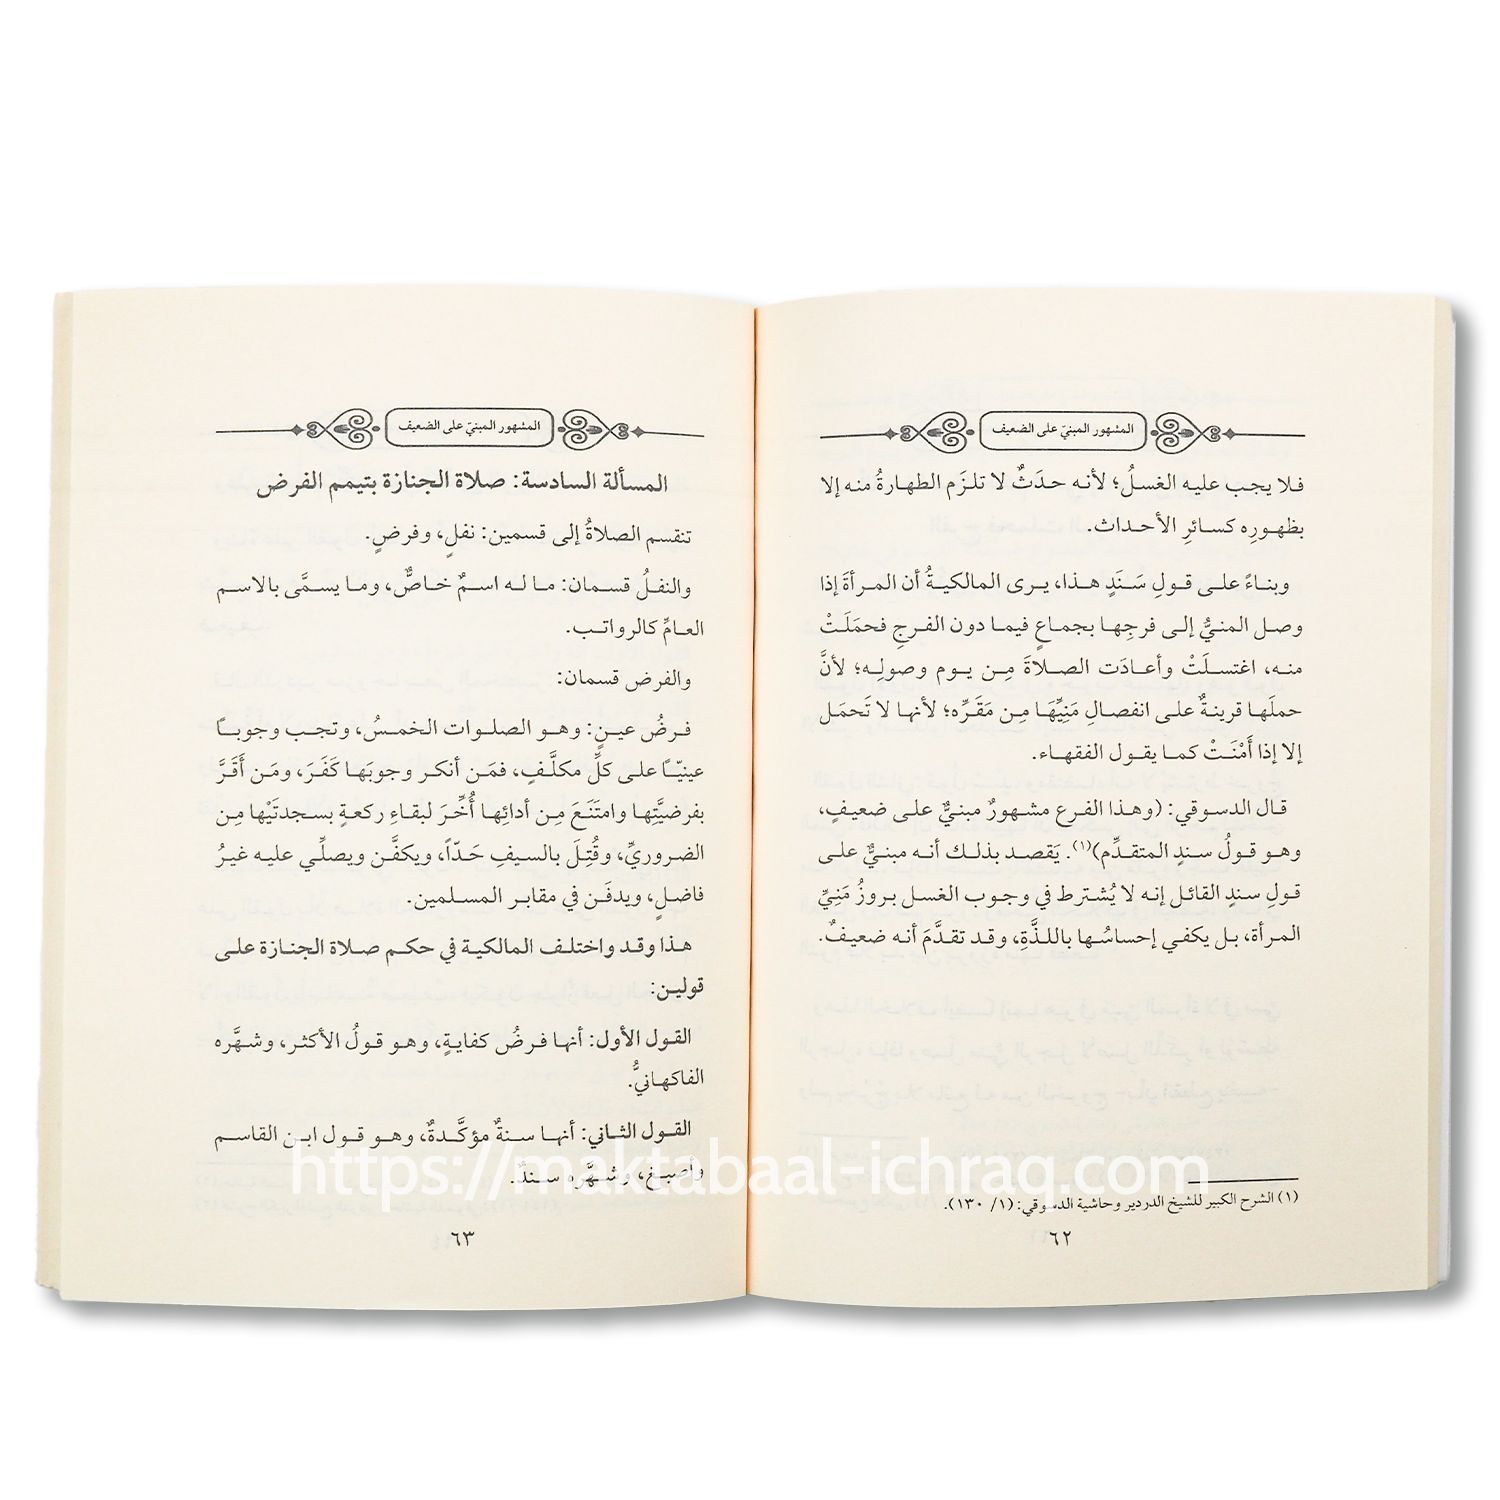 المشهور المبنيّ على الضعيف
فلا يجب عليه الغسلُ؛ لأنه حدَثٌ لا تلزَم الطهارةُ منه إلا
بظهورِه كسائرِ الأحداث.
وبناءً على قولِ سَنَدٍ هذا، يرى المالكيةُ أن المرأةَ إذا
وصل المنيُّ إلى فرجِها بجماعٍ فيما دون الفرجِ فحمَلَتْ
منه، اغتسلَتْ وأعادَت الصلاةَ مِن يوم وصولِه؛ لأنَّ
حملَها قرينةٌ على انفصالِ مَنِيِّهَا مِن مَقَرِّه؛ لأنها لا تَحمَل
إلا إذا أَمْنَتْ كما يقول الفقهاء.
قال الدسوقي: (وهذا الفرع مشهورٌ مبنيٌّ على ضعيفٍ،
وهو قولُ سندٍ المتقدِّم)(١). يَقصد بذلك أنه مبنيٌّ على
قولِ سندٍ القائل إنه لا يُشترط في وجوب الغسل بروزُ مَنِيِّ
المرأة، بل يكفي إحساسُها باللذَّةِ، وقد تقدَّمَ أنه ضعيفٌ.
(١) الشرح الكبير للشيخ الدردير وحاشية الدسوقي: (١/ ١٣٠).
٦٢
المشهور المبنيّ على الضعيف
المسألة السادسة: صلاة الجنازة بتيمم الفرض
تنقسم الصلاةُ إلى قسمين: نفلٍ، وفرضٍ.
والنفلُ قسمان: ما له اسمٌ خاصٌّ، وما يسمَّى بالاسم
العامِّ كالرواتب.
والفرض قسمان:
فرضُ عينٍ: وهو الصلوات الخمسُ، وتجب وجوبًا
عينيّا على كلِّ مكلَّفٍ، فمَن أنكر وجوبَها كَفَرَ، ومَن أَقَرَّ
بفرضيَّتِها وامتَنَعَ مِن أدائِها أُخِّرَ لبقاءِ ركعةٍ بسجدتَيْها مِن
الضروريِّ، وقُتِلَ بالسيفِ حَدّاً، ويكفَّن ويصلِّي عليه غيرُ
فاضلٍ، ويدفَن في مقابر المسلمين.
هذا وقد واختلف المالكية في حكم صلاة الجنازة على
قولين:
القول الأول: أنها فرضُ كفايةٍ، وهو قولُ الأكثر، وشهَّره
الفاكهانيُّ.
القول الثاني: أنها سنةٌ مؤكَّدةٌ، وهو قول ابن القاسم
وأصبغ، وشهَّره سندٌ.
٦٣
https://maktabaal-ichraq.com